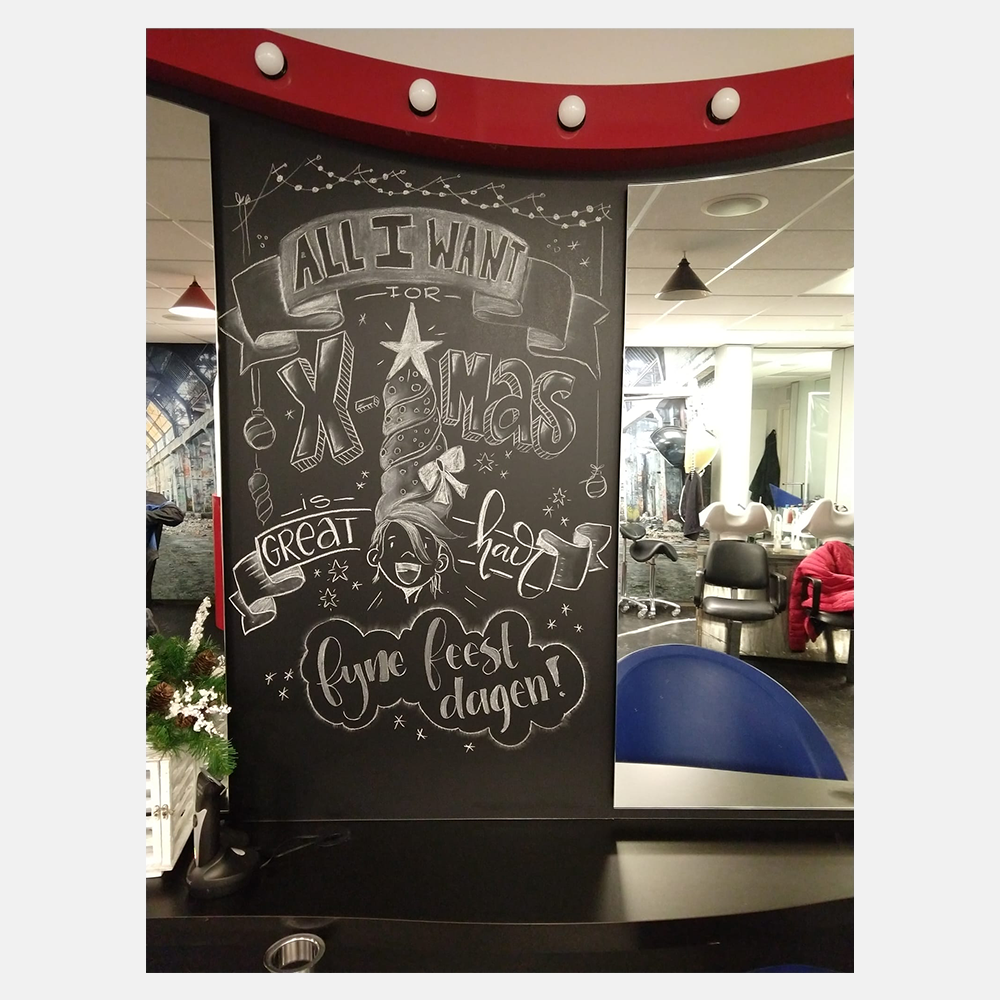 ALL I WANT
FOR
X-MAS
IS
GREAT hair
fyne feest
dagen!